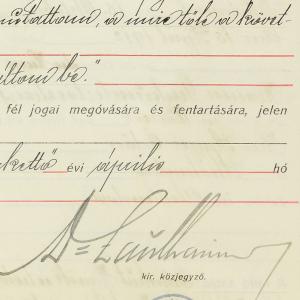 mutattam, a mire tőle a követ-
áltam be."
fél jogai megóvására és fentartására, jelen
kettő évi április hó
Dr
kir. közjegyző.